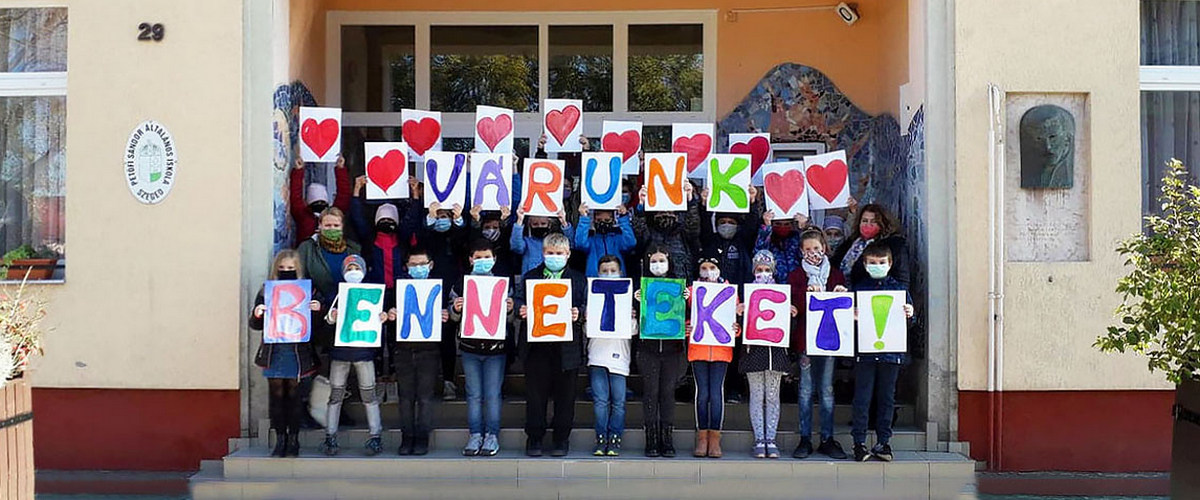 29
PETŐFI SÁNDOR ÁLTALÁNOS ISKOLA
SZEGED
VÁRUNK
BENNETEKET!